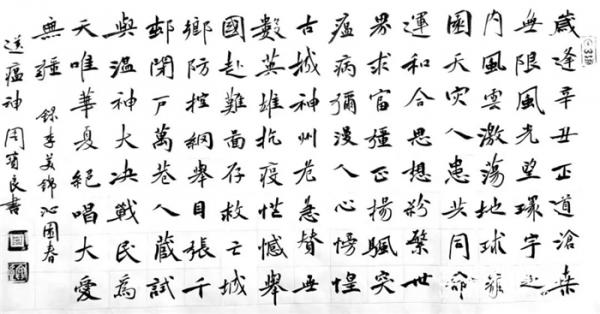 歲逢辛丑正道滄桑
無限風光望環宇之
内風雲激蕩地球家
園天灾人患共同命
運和合思想繫世
界求富疆正揚颿突
瘟病彌漫人心惶
古城神州危急贊無
數英雄抗疫憾舉
國赴難面存救亡城
鄉防控綱舉目張千
邨閉戸萬巷人藏試
與温神大決戰民為
天唯華夏絕唱大愛
無疆
錄李美錦沁園春
送瘟神周菊良書
319